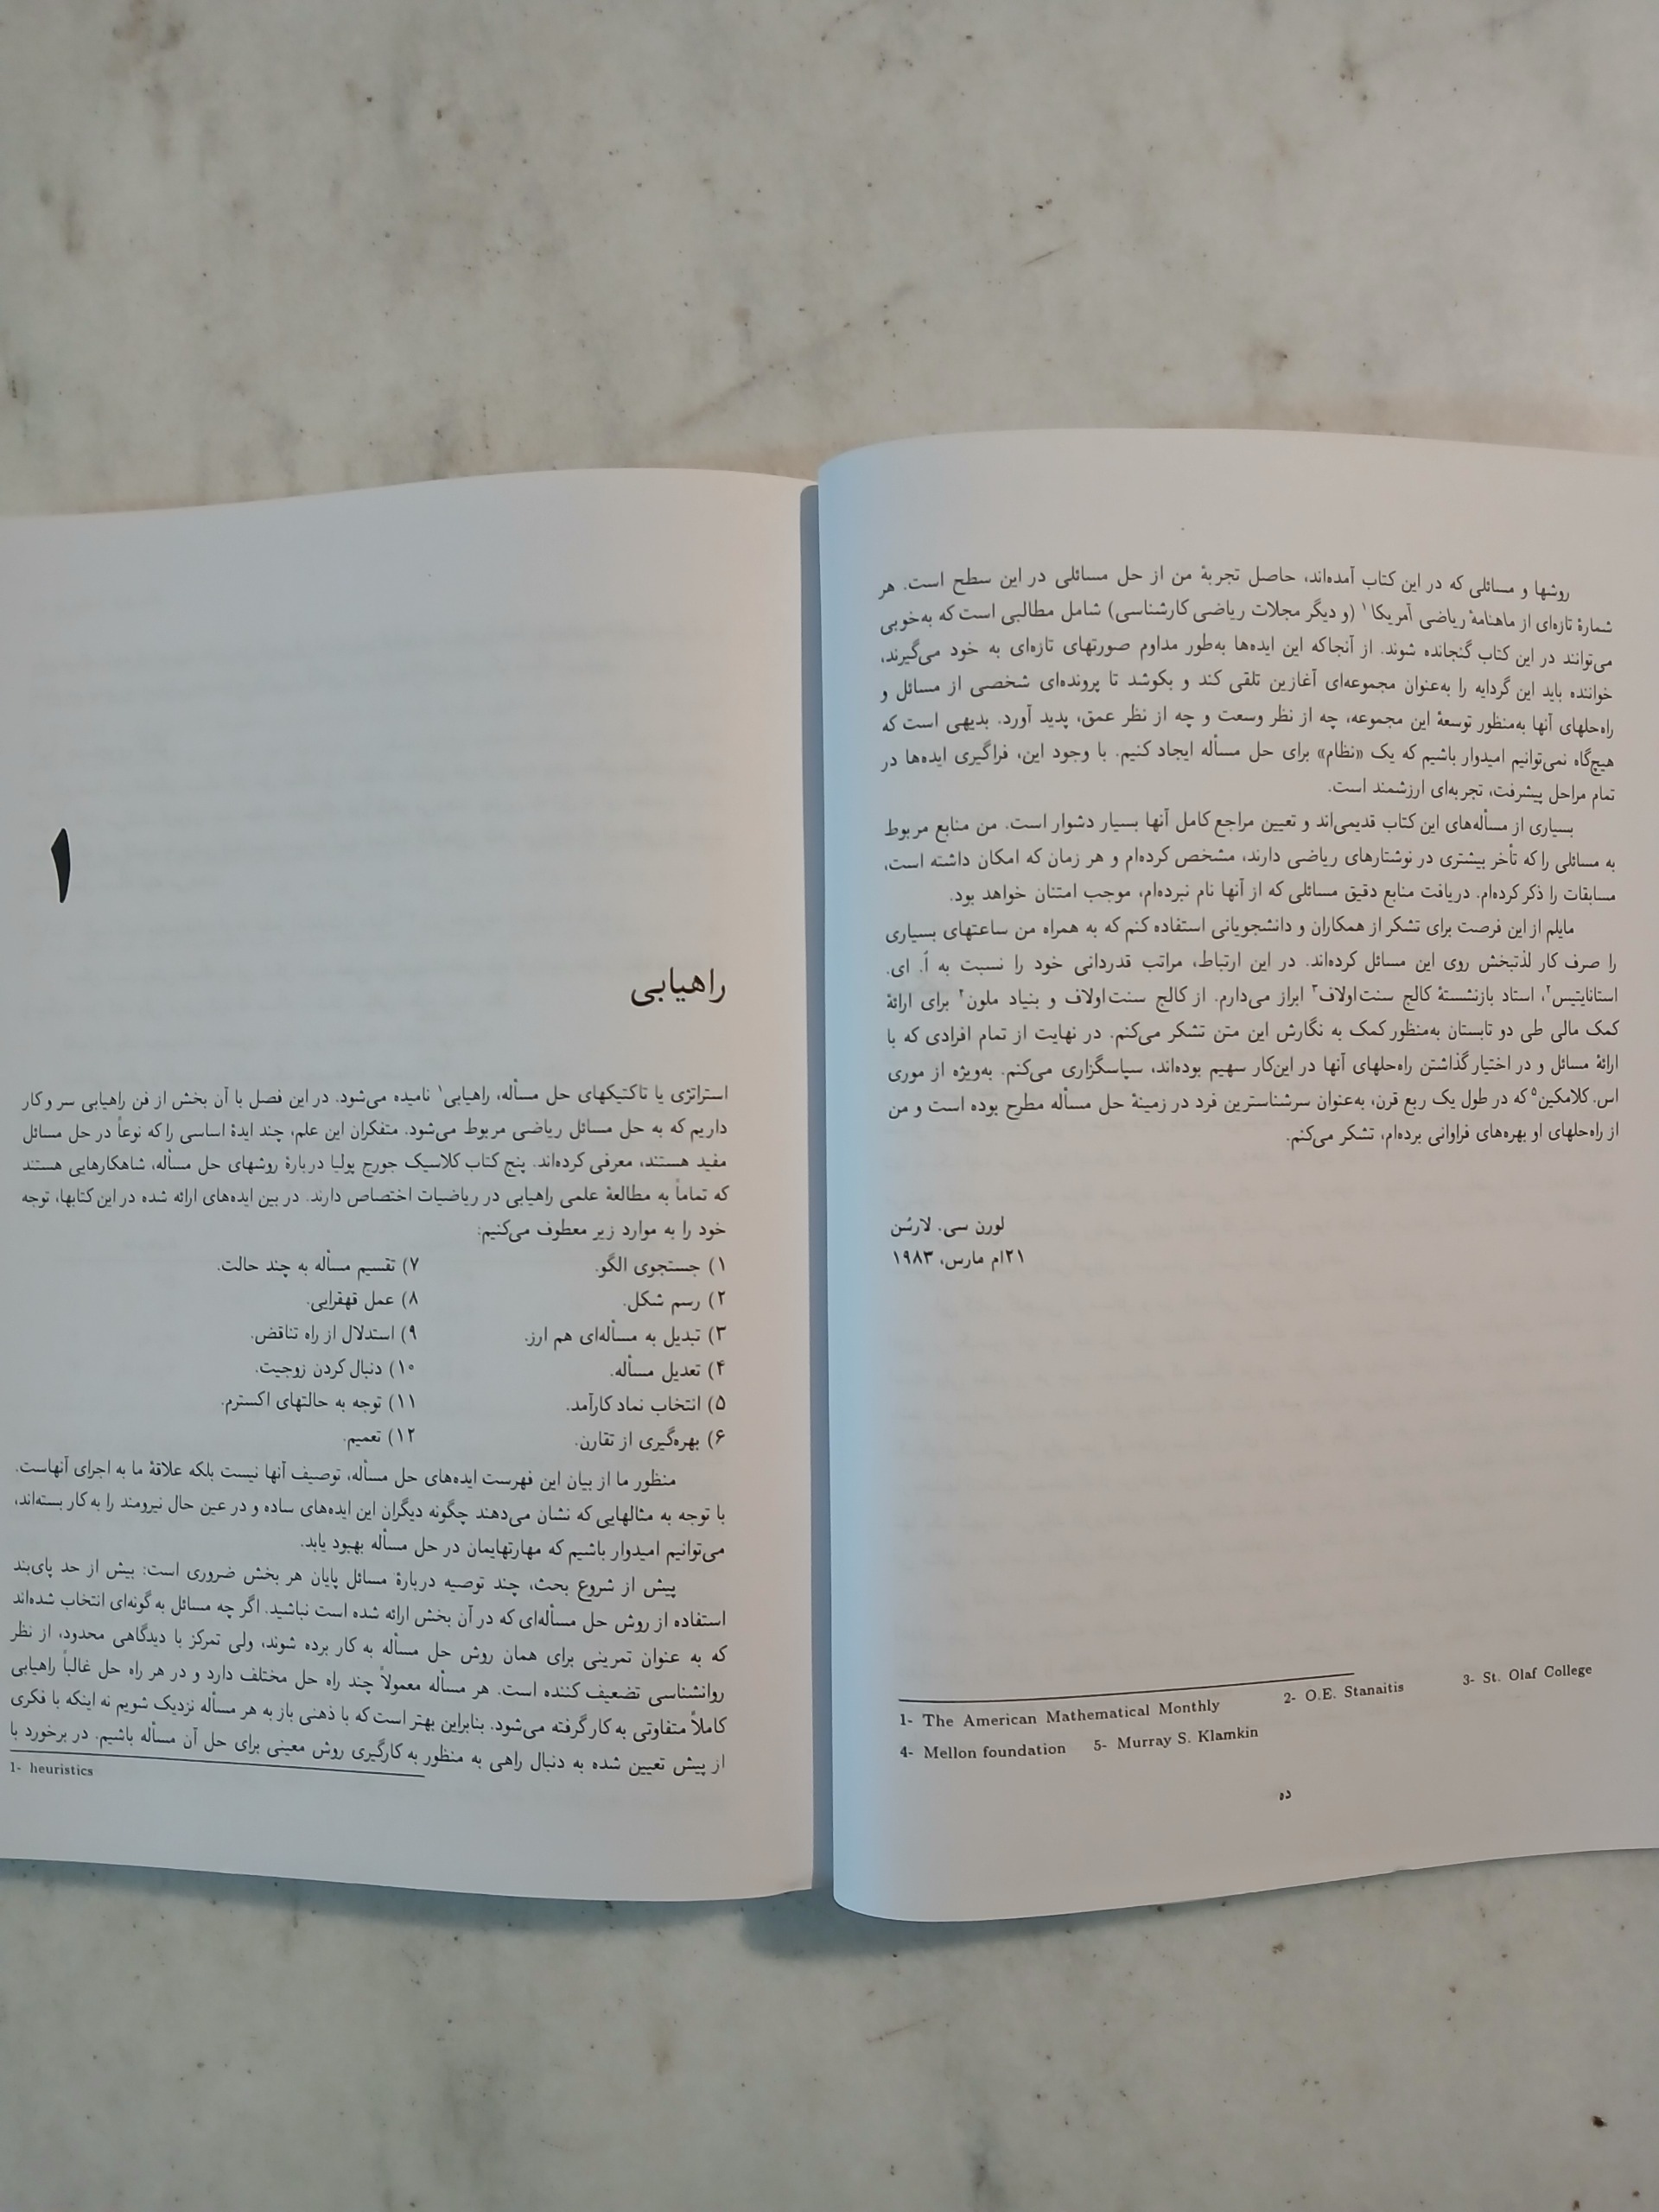 روشها و مسائلی که در این کتاب آمده‌اند، حاصل تجربهٔ من از حل مسائلی در این سطح است. هر
شمارهٔ تازه‌ای از ماهنامهٔ ریاضی آمریکا۱ (و دیگر مجلات ریاضی کارشناسی) شامل مطالبی است که به‌خوبی
می‌توانند در این کتاب گنجانده شوند. از آنجاکه این ایده‌ها به‌طور مداوم صورتهای تازه‌ای به خود می‌گیرند،
خواننده باید این گردایه را به‌عنوان مجموعه‌ای آغازین تلقی کند و بکوشد تا پرونده‌ای شخصی از مسائل و
راه‌حلهای آنها به‌منظور توسعهٔ این مجموعه، چه از نظر وسعت و چه از نظر عمق، پدید آورد. بدیهی است که
هیچ‌گاه نمی‌توانیم امیدوار باشیم که یک «نظام» برای حل مسأله ایجاد کنیم. با وجود این، فراگیری ایده‌ها در
تمام مراحل پیشرفت، تجربه‌ای ارزشمند است.
بسیاری از مسأله‌های این کتاب قدیمی‌اند و تعیین مراجع کامل آنها بسیار دشوار است. من منابع مربوط
به مسائلی را که تأخر بیشتری در نوشتارهای ریاضی دارند، مشخص کرده‌ام و هر زمان که امکان داشته است،
مسابقات را ذکر کرده‌ام. دریافت منابع دقیق مسائلی که از آنها نام نبرده‌ام، موجب امتنان خواهد بود.
مایلم از این فرصت برای تشکر از همکاران و دانشجویانی استفاده کنم که به همراه من ساعتهای بسیاری
را صرف کار لذتبخش روی این مسائل کرده‌اند. در این ارتباط، مراتب قدردانی خود را نسبت به اُ. ای.
استانایتیس۲، استاد بازنشستهٔ کالج سنت‌اولاف۳ ابراز می‌دارم. از کالج سنت‌اولاف و بنیاد ملون۴ برای ارائهٔ
کمک مالی طی دو تابستان به‌منظور کمک به نگارش این متن تشکر می‌کنم. در نهایت از تمام افرادی که با
ارائهٔ مسائل و در اختیار گذاشتن راه‌حلهای آنها در این‌کار سهیم بوده‌اند، سپاسگزاری می‌کنم. به‌ویژه از موری
اس. کلامکین۵ که در طول یک ربع قرن، به‌عنوان سرشناسترین فرد در زمینهٔ حل مسأله مطرح بوده است و من
از راه‌حلهای او بهره‌های فراوانی برده‌ام، تشکر می‌کنم.
لورن سی. لارسُن
۲۱ام مارس، ۱۹۸۳
1- The American Mathematical Monthly 2- O.E. Stanaitis 3- St. Olaf College
4- Mellon foundation 5- Murray S. Klamkin
ده
۱
راهیابی
استراتژی یا تاکتیکهای حل مسأله، راهیابی۱ نامیده می‌شود. در این فصل با آن بخش از فن راهیابی سر و کار
داریم که به حل مسائل ریاضی مربوط می‌شود. متفکران این علم، چند ایدهٔ اساسی را که نوعاً در حل مسائل
مفید هستند، معرفی کرده‌اند. پنج کتاب کلاسیک جورج پولیا دربارهٔ روشهای حل مسأله، شاهکارهایی هستند
که تماماً به مطالعهٔ علمی راهیابی در ریاضیات اختصاص دارند. در بین ایده‌های ارائه شده در این کتابها، توجه
خود را به موارد زیر معطوف می‌کنیم:
۱) جستجوی الگو. ۷) تقسیم مسأله به چند حالت.
۲) رسم شکل. ۸) عمل قهقرایی.
۳) تبدیل به مسأله‌ای هم ارز. ۹) استدلال از راه تناقض.
۴) تعدیل مسأله. ۱۰) دنبال کردن زوجیت.
۵) انتخاب نماد کارآمد. ۱۱) توجه به حالتهای اکسترم.
۶) بهره‌گیری از تقارن. ۱۲) تعمیم.
منظور ما از بیان این فهرست ایده‌های حل مسأله، توصیف آنها نیست بلکه علاقهٔ ما به اجرای آنهاست.
با توجه به مثالهایی که نشان می‌دهند چگونه دیگران این ایده‌های ساده و در عین حال نیرومند را به کار بسته‌اند،
می‌توانیم امیدوار باشیم که مهارتهایمان در حل مسأله بهبود یابد.
پیش از شروع بحث، چند توصیه دربارهٔ مسائل پایان هر بخش ضروری است: بیش از حد پای‌بند
استفاده از روش حل مسأله‌ای که در آن بخش ارائه شده است نباشید. اگر چه مسائل به گونه‌ای انتخاب شده‌اند
که به عنوان تمرینی برای همان روش حل مسأله به کار برده شوند، ولی تمرکز با دیدگاهی محدود، از نظر
روانشناسی تضعیف کننده است. هر مسأله معمولاً چند راه حل مختلف دارد و در هر راه حل غالباً راهیابی
کاملاً متفاوتی به کار گرفته می‌شود. بنابراین بهتر است که با ذهنی باز به هر مسأله نزدیک شویم نه اینکه با فکری
از پیش تعیین شده به دنبال راهی به منظور به کارگیری روش معینی برای حل آن مسأله باشیم. در برخورد با
1- heuristics